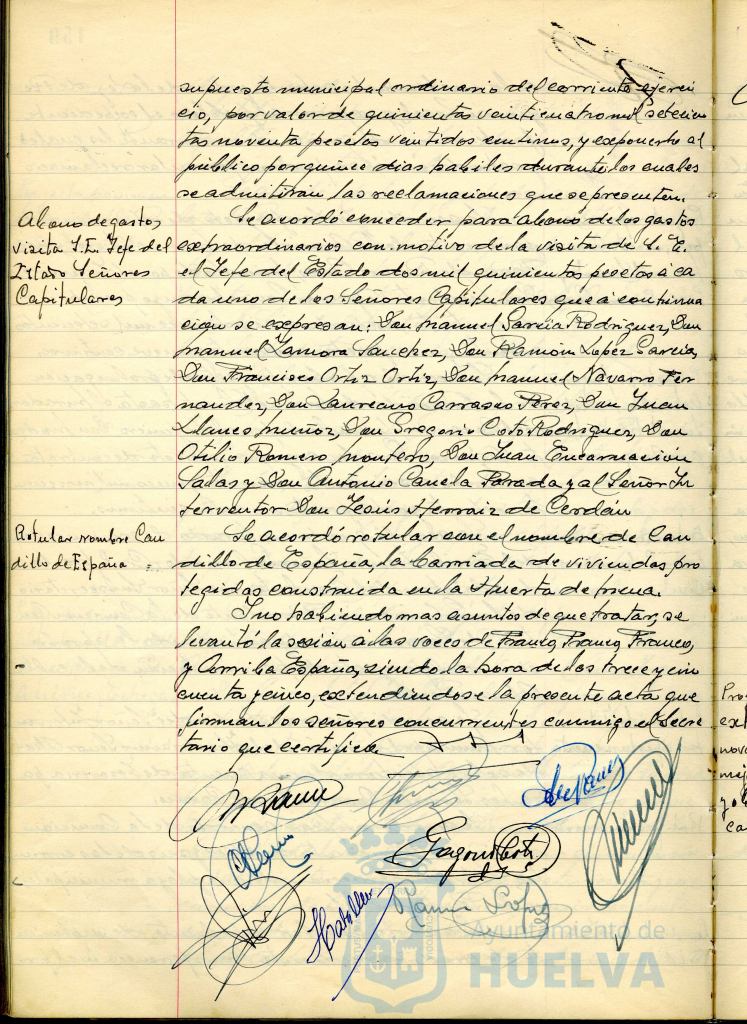 supuesto municipal ordinario del corriente ejerci-
cio, por valor de quinientas veinticuatro mil setecien
tas noventa pesetas veintidos centimos, y exponerlo al
público por quince dias habiles durante los cuales
se admitirán las reclamaciones que se presenten.
Abono de gastos
visita S.E. Jefe del
Estado Señores
Capitulares
Se acordó conceder para abono de los gastos
extraordinarios con motivo de la visita de S. E.
el Jefe del Estado dos mil quinientas pesetas a ca
da uno de los Señores Capitulares que a continua
ción se expresan: Don Manuel Garcia Rodriguez, Don
Manuel Zamora Sanchez, Don Ramón Lopez Garcia,
Don Francisco Ortiz Ortiz, Don Manuel Navarro Fer
nandez, Don Laureano Carrasco Perez, Don Juan
Llanes Muñoz, Don Gregorio Coto Rodriguez, Don
Otilio Romero Montero, Don Juan Encarnación
Salas y Don Antonio Canela Parada y al Señor In
terventor Don Jesús Herraiz de Cerdán
Rotular nombre Cau
dillo de España
Se acordó rotular con el nombre de Cau
dillo de España, la barriada de viviendas pro
tegidas construida en la Huerta de Mena.
Y no habiendo mas asuntos de que tratar, se
levantó la sesion a las voces de Franco, Franco, Franco,
y Arriba España, siendo la hora de las trece y cin
cuenta y cinco, extendiendose la presente acta que
firman los señores concurrentes conmigo el Secre
tario que certifico.
Gregorio Coto
Ramon Lopez
Ayuntamiento de
HUELVA